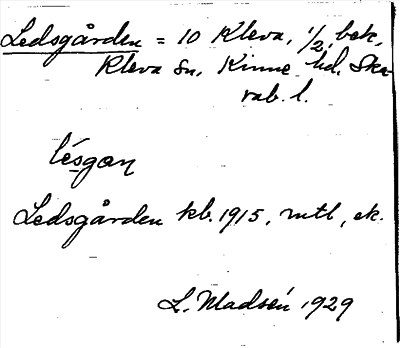 Ledsgården = 10 Kleva, 1/2, bek,
Kleva sn, Kinne hd. Ska-
rab. l.
lésgan
Ledsgården kb. 1915, mtl, ek.
L. Madsén 1929